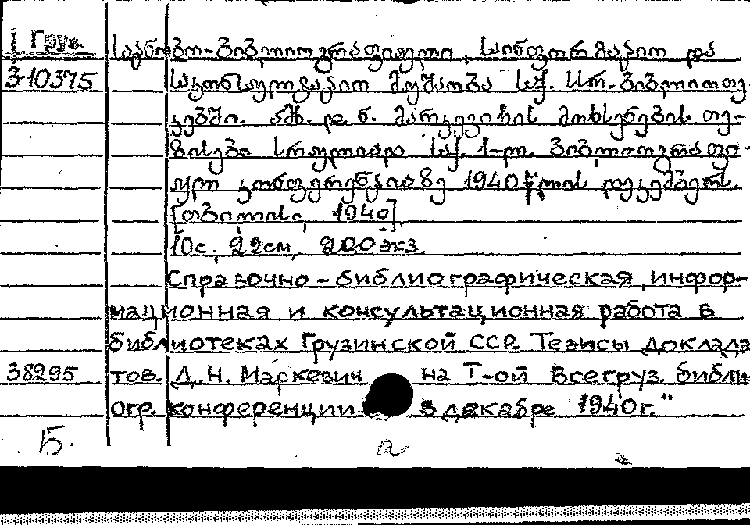 1 Груз.
3-10375
საცნობო-ბიბლიოგრაფიული, საინფორმაციო და
საკონსულტაციო მუშაობა საქ. სსრ. ბიბლიოთე-
კებში. ამხ. დ. ნ. მარკევიჩის მოხსენების თე-
ზისები სრულიად საქ. 1-ლ. ბიბლიოგრაფი-
ულ კონფერენციაზე 1940 წლის დეკემბერს.
[თბილისი, 1940]
10с. 22см, 200 экз
Справочно-библиографическая, инфор-
мационная и консультационная работа в
библиотеках Грузинской ССР. Тезисы доклада
38295
тов. Д. Н. Маркевич на I-ой Всегруз. библи
огр. конференции в декабре 1940г."
Б.